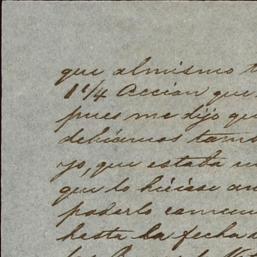 que al mismo t
1 1/4 Accion que
pues me dijo qu
debiamos tam
yo, que estaba en
que lo hiciese an
poderlo comun
hasta la fecha